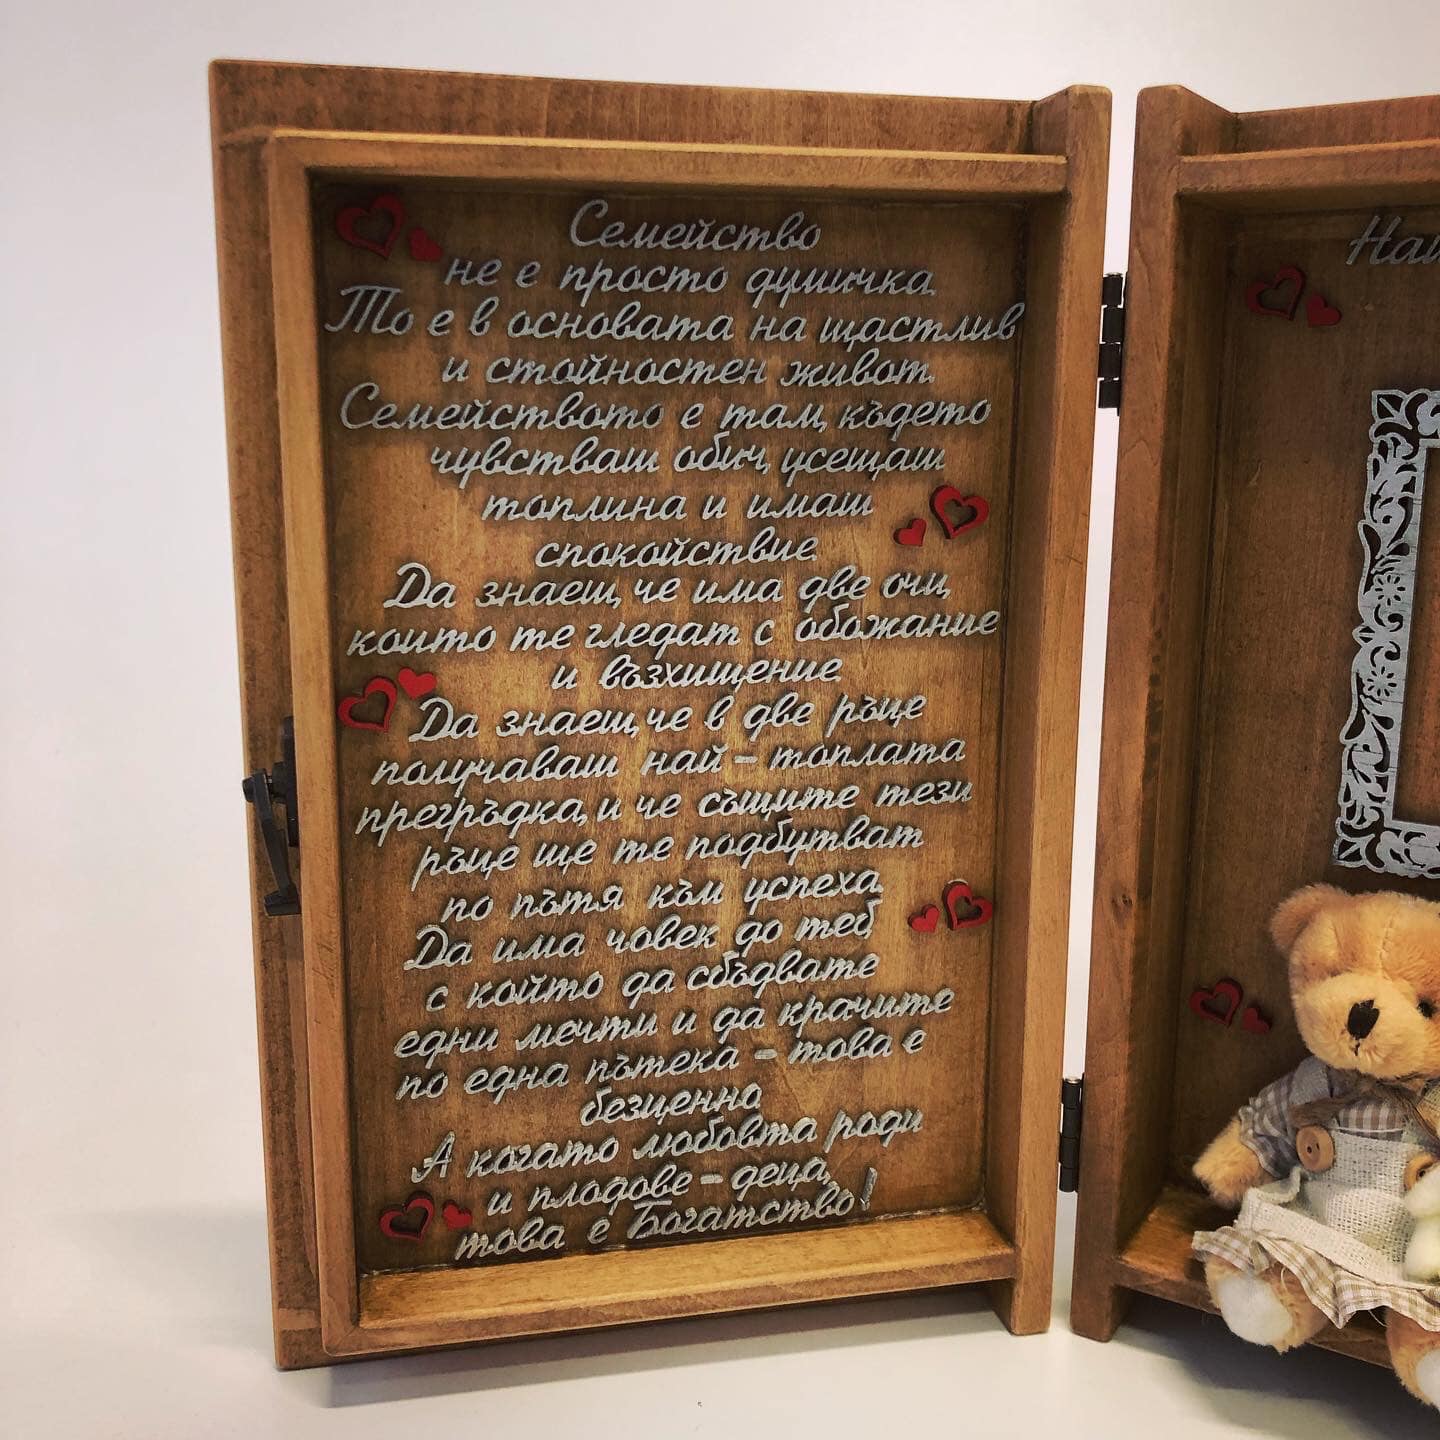 Семейство
не е просто думичка.
То е в основата на щастлив
и стойностен живот.
Семейството е там, където
чувстваш обич, усещаш
топлина и имаш
спокойствие.
Да знаеш, че има две очи,
които те гледат с обожание
и възхищение.
Да знаеш, че в две ръце
получаваш най - топлата
прегръдка, и че същите тези
ръце ще те подбутват
по пътя към успеха.
Да има човек до теб
с който да сбъдвате
едни мечти и да крачите
по една пътека - това е
безценно.
А когато любовта роди
и плодове - деца,
това е Богатство!